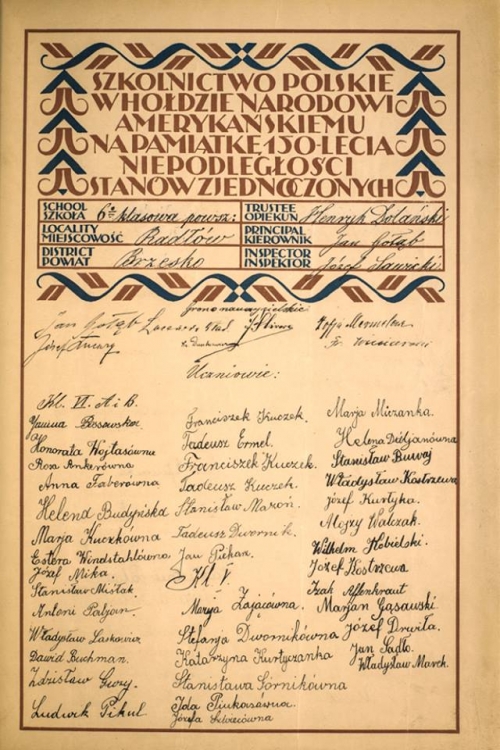 SZKOLNICTWO POLSKIE
W HOŁDZIE NARODOWI
AMERYKAŃSKIEMU
NA PAMIĄTKĘ 150-LECIA
NIEPODLEGŁOŚCI
STANÓW ZJEDNOCZONYCH
SCHOOL
SZKOŁA 6cio klasowa powsz:
TRUSTEE
OPIEKUN Henryk Dolański
LOCALITY
MIEJSCOWOŚĆ Radłów
PRINCIPAL
KIEROWNIK Jan Gołąb
DISTRICT
POWIAT Brzesko
INSPECTOR
INSPEKTOR Józef Sawicki
Grono nauczycielskie
Jan Gołąb
Józef
Uczniowie:
Kl. VI. A i B.
Janina Bossowska.
Honorata Wojtasówna
Roza Ankerówna
Anna Faberówna
Helena Budyńska
Marja Kuczkówna
Estera Windstahlówna
Józef Mika.
Stanisław Misztak
Antoni Paljan.
Władysław Laskowicz
Dawid Buchman.
Zdzisław
Ludwik Pikul
Franciszek Kuczek.
Tadeusz Ermel.
Franciszek Kuczek.
Tadeusz Kuczek
Stanisław Maroń.
Tadeusz Dwornik.
Jan Pukan.
Kl. V.
Marya Zającówna.
Stefanja Dwornikówna
Katarzyna Kurtyczanka
Stanisława Górnikówna
Ida
Józefa
Marja Mizanka.
Helena
Stanisław Burvaj
Władysław Kostrzewa
Józef Kurtyka.
Alojzy Walczak.
Wilhelm Kobielski.
Józef Kostrzewa
Izak Affenkraut
Marjan Gąsawski
Józef Drwiła.
Jan Sadło.
Władysław March.